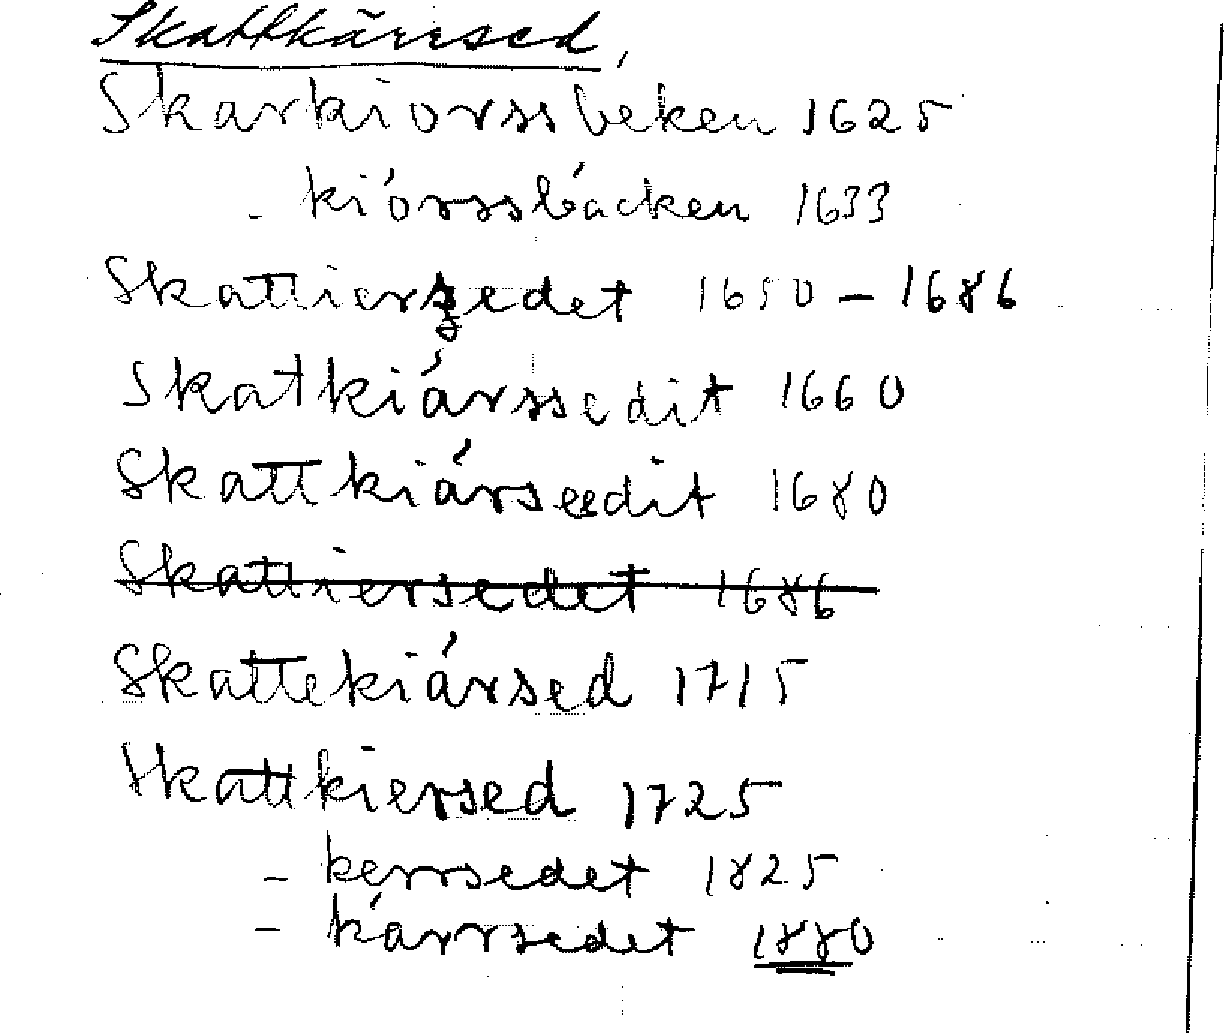 Skattkärrsed,
Skarkiorssbeken 1625
- kiórssbácken 1633
Skattierszedet 1650 – 1686
Skatkiárssedit 1660
Skattkiárseedit 1680
Skattiersedet 1686
Skattekiársed 1715
Skattkiersed 1725
- kerrsedet 1825
- kárrsedet 1880